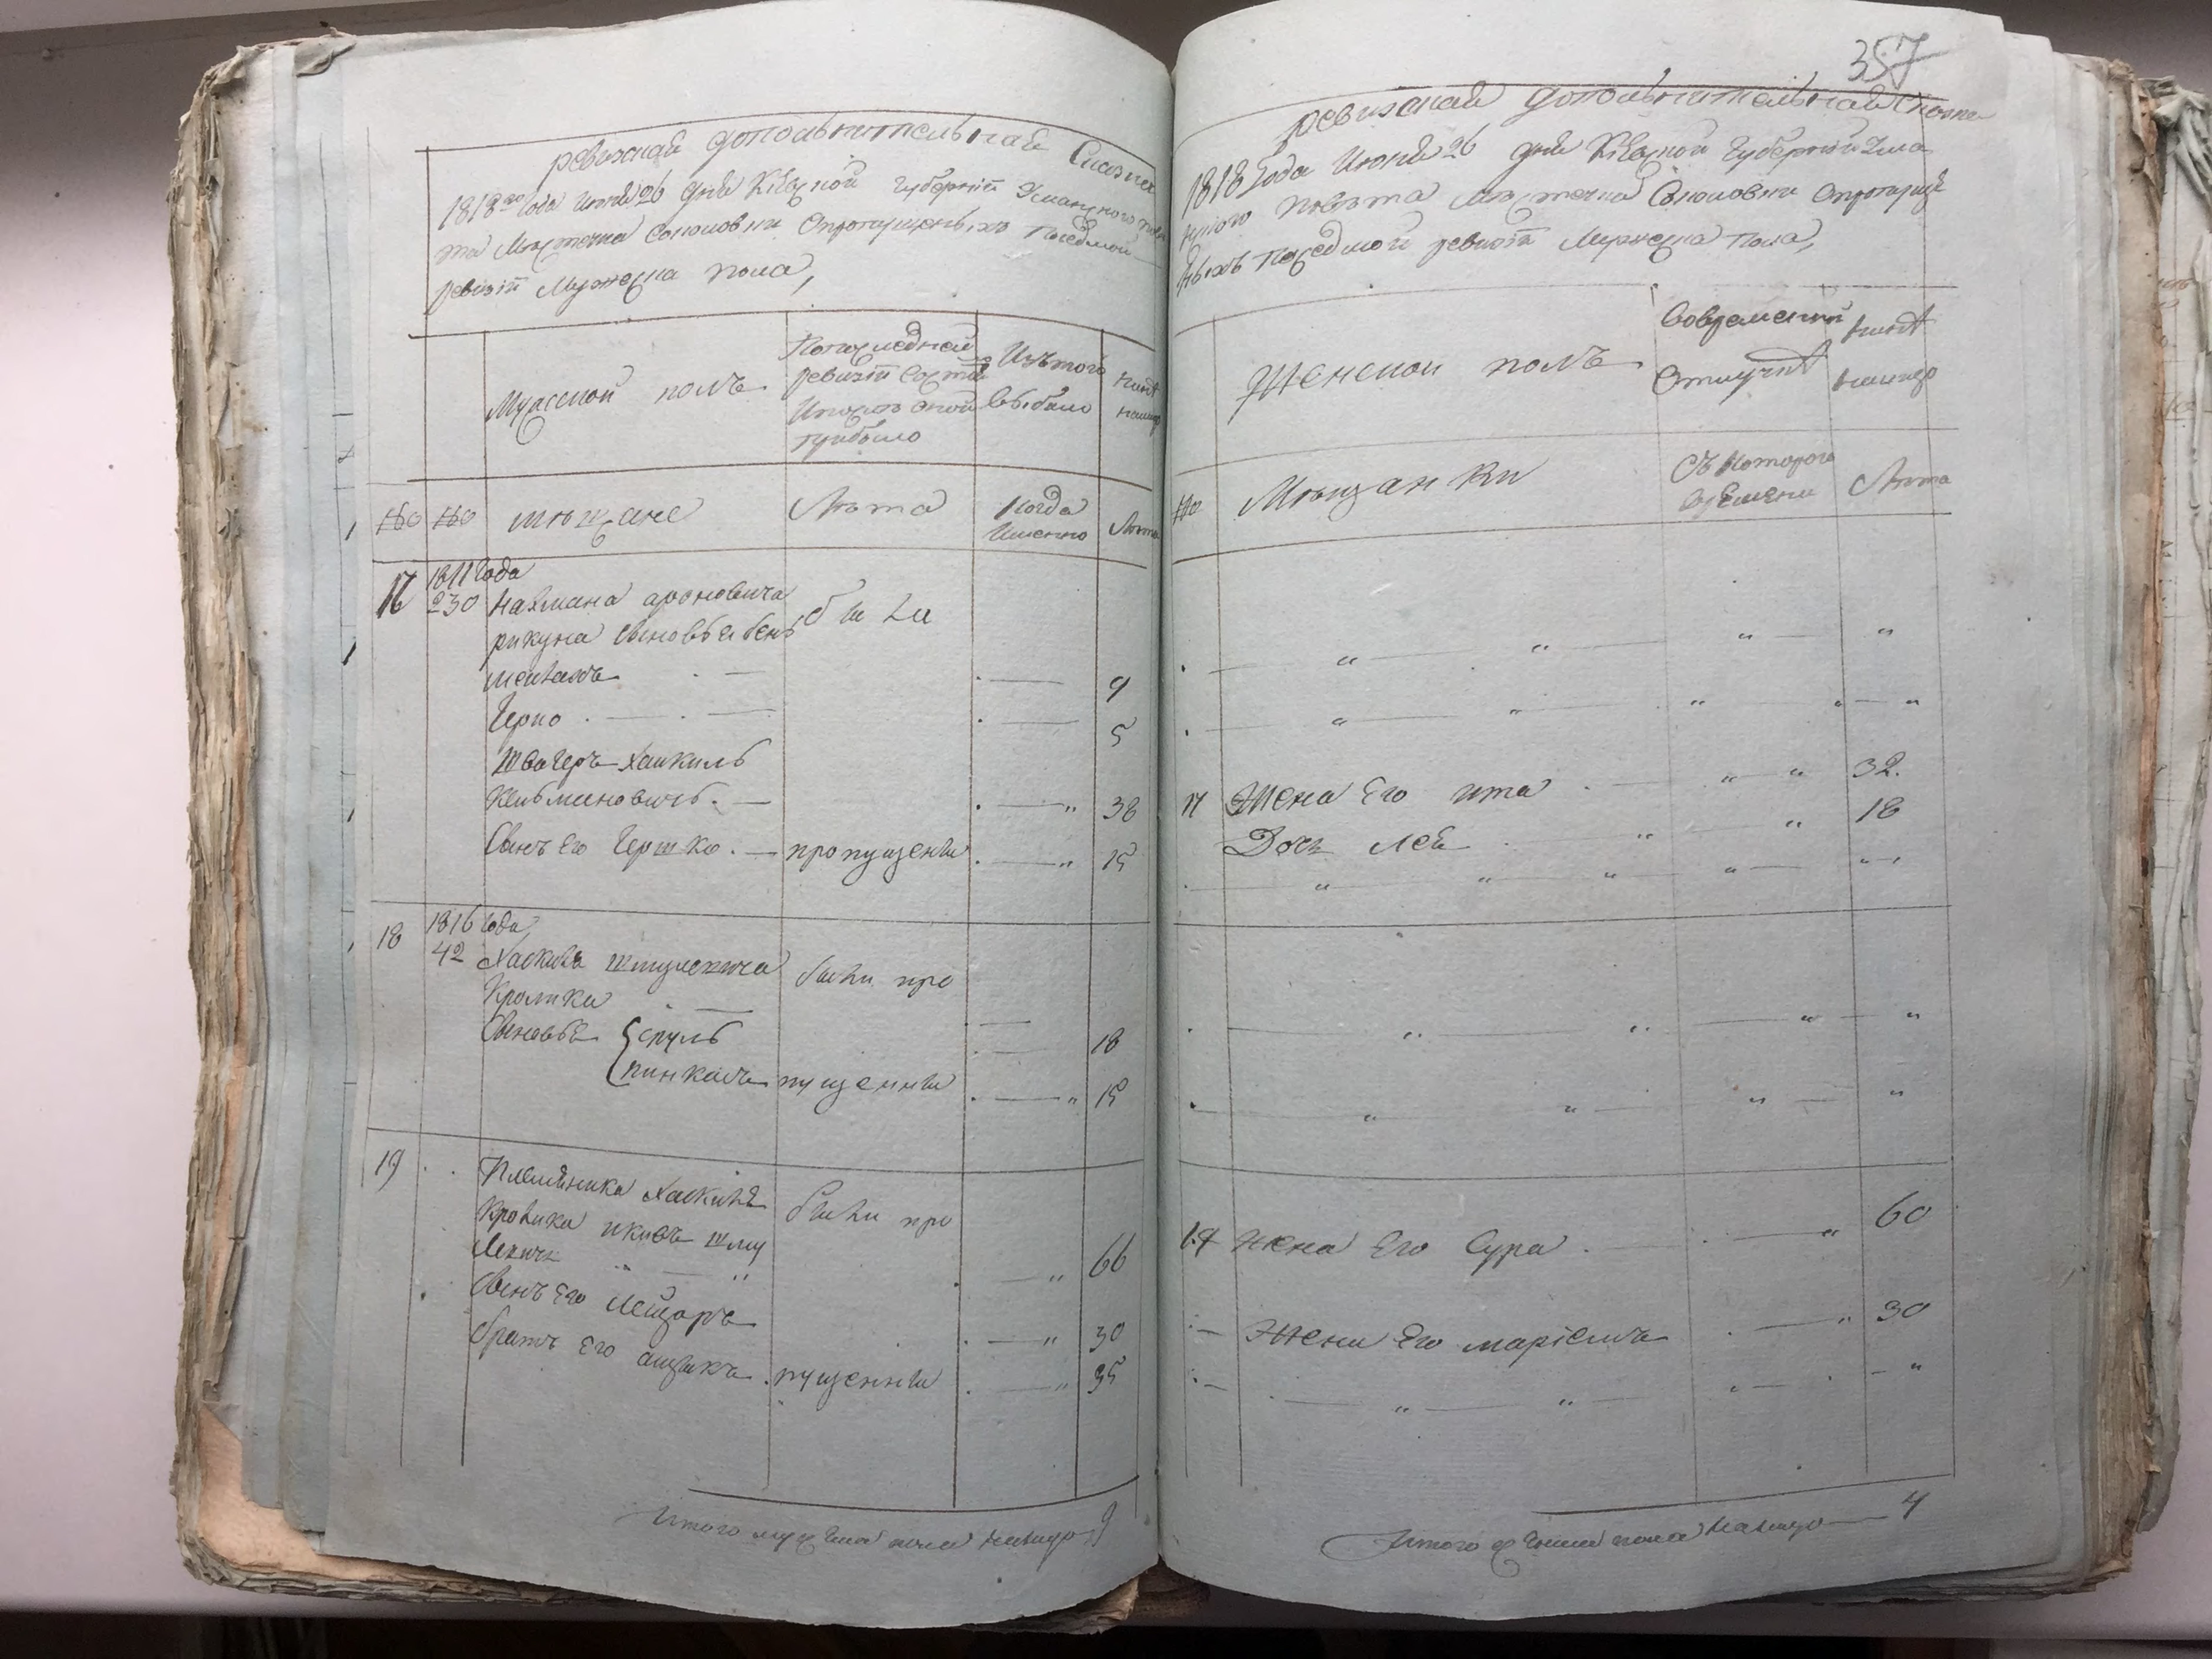 ревизкая дополнительная Сказка
1818го Года Июня 26 дня Киевской Губернии Уманского пове
та Местечка Соколовки О пропущенных по седмой
ревизии Мужеска пола,
Мужеской полъ
По последней
ревизии состо
и после оной
прибыло
Изъ того
выбыло
ныне
налицо
№ № мещане
Лета
Когда
Именно
Лета
17 1811 Года
230 Нахмана ароновича
рикуна сыновья бень были
9
Герко 5
швагеръ Хаикиль
Кельмановичь 38
Сынъ Его Гершко пропущены 15
18 1816 Года
42 Хаскиля шмулевича были про
Кролика
Сыновья Сруль 18
пинкасъ пущенны 15
19 Племянника Хаскиля были про
Кролика шму
левича 66
Сынъ Его Лейзоръ 30
братъ Его аизикъ пущенны 35
Итого мужеска пола налицо 9
357
ревизкая дополнительная Сказка
1818 Года Июня 26 дня Киевской Губернии Ума
нского повета Местечка Соколовки О пропуще
ныхъ по седмой ревизии Мужеска пола,
Женской полъ
Вовременной
Отлучке
ныне
налицо
№ Мещанки
Съ Которого
времени
Лета
17 Жена Его ита 32.
Дочь Лея 18
19 жена Его Сура 60
Жена Его 30
Итого женска пола налицо 4